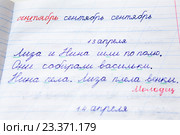 сентябрь сентябрь сентябрь
13 апреля
Лиза и Нина шли по полю.
Они собирали васильки.
Нина села. Лиза плела венки.
Молодец
14 апреля
© Fotobank.ru / Фотобанк Лори
lori.ru/23371179